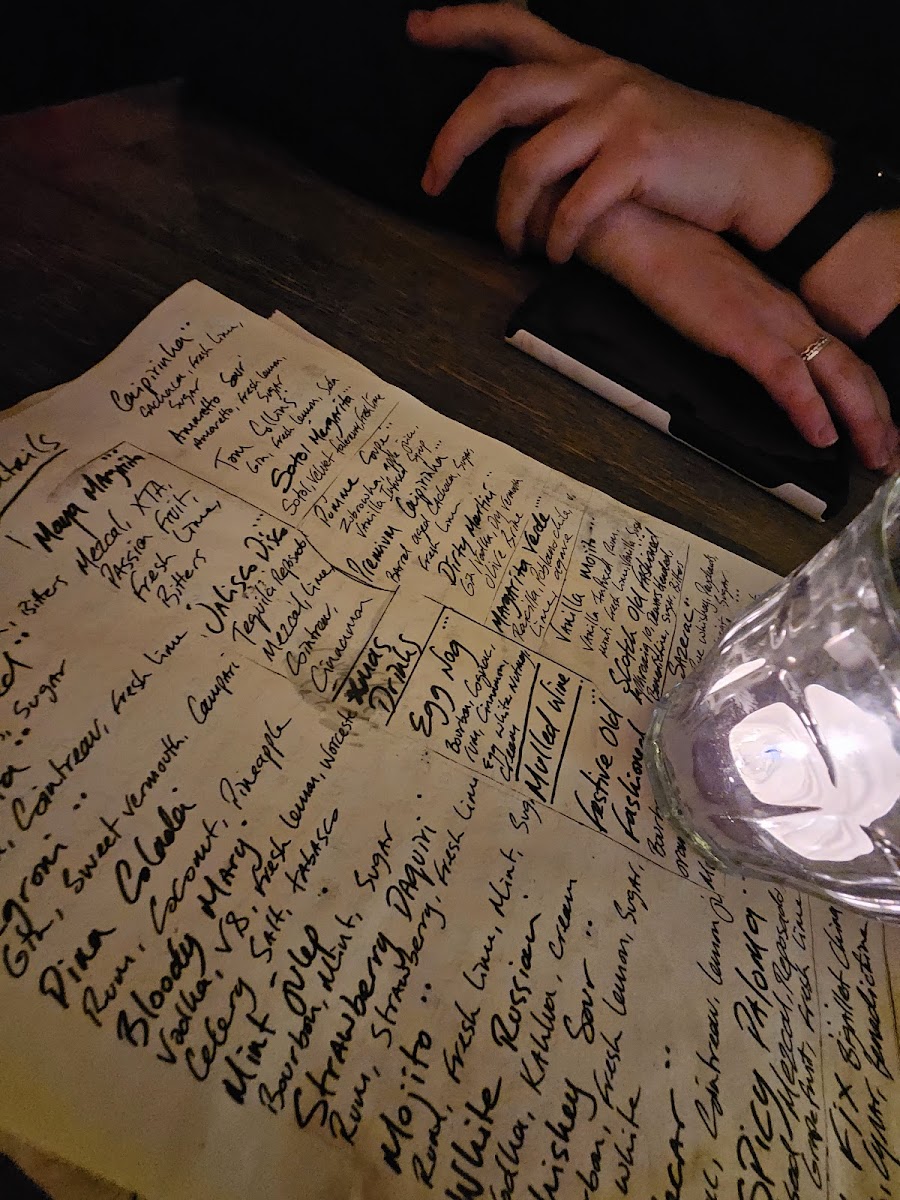 Caipirinha
Cachaca, Fresh lime,
Sugar
Amaretto Sour
Amaretto, Fresh lemon,
Sugar
Tom Collins
Gin, Fresh lemon, Soda
Sotol Margarita
Sotol, Velvet Falernum, Fresh lime
tails
Maya Margarita
Mezcal, XTA,
Passion Fruit,
Fresh Lime,
Bitters
Jalisco Disco
Tequila Reposado
Mezcal, Lime
Cointreau,
Cinnamon
Vanilla Infused
Premium Caipirinha
Barrel aged Cachaca Sugar
Fresh lime
Dirty Martini
Gin/Vodka, Dry Vermouth
Olive Brine
Margarita Verde
Raicilla, Poblano chile,
Lime, agave
Vanilla Mojito
Vanilla Infused Rum,
Scotch Old Fashioned
Sazerac
Xmas
Drinks
Egg Nog
Bourbon, Cognac,
rum, Cinnamon,
Egg White Nutmeg
Cream
Mulled Wine
Festive Old
Fashioned
Bitters
Sugar
Cointreau, Fresh lime
groni
Gin, Sweet vermouth, Campari
Pina Colada
Rum, Coconut, Pineapple
Bloody Mary
Vodka, V8, Fresh lemon, Worcest
Celery Salt, Tabasco
Mint Julep
Bourbon, Mint, Sugar
Strawberry Daquiri
Rum, Strawberry, Fresh lime
Mojito
Rum, Fresh lime, Mint, Sug
White Russian
odka, Kahlua, cream
hiskey Sour
rbon, Fresh lemon, Sugar,
white
ecar
c, Cointreau, lemon
Spicy Paloma
Mezcal, Reposado
Grapefruit, Fresh lime
Fix
Benedictine